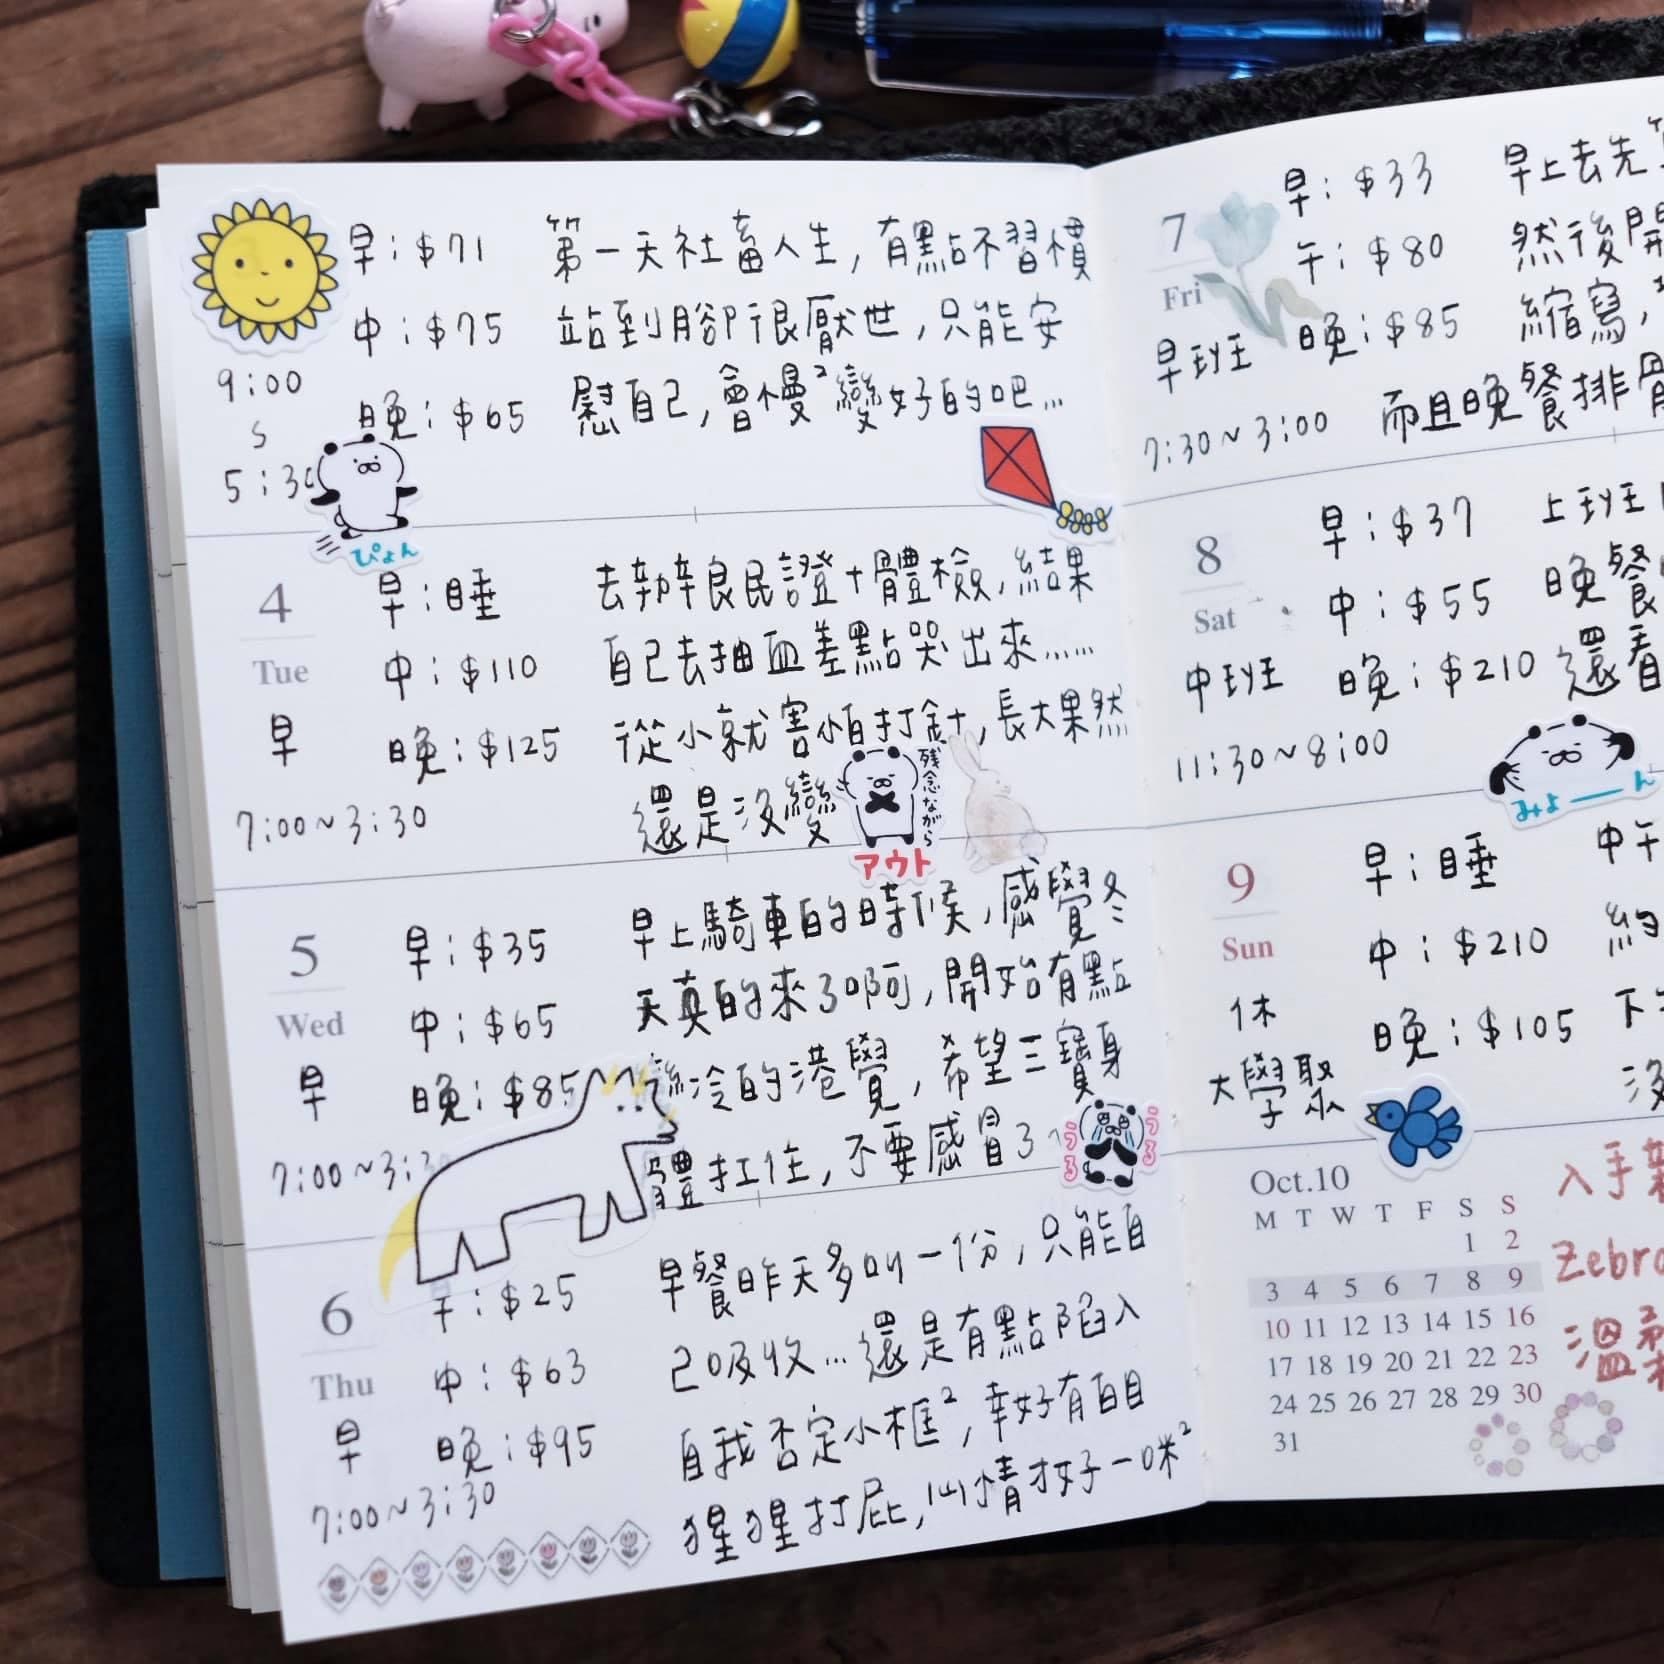 早：$71
中：$75
晚：$65
9:00
5:30
第一天社畜人生，有點不習慣
站到腳很厭世，只能安
慰自己，會慢²變好的吧…
ぴょん
4
Tue
早
7:00~3:30
早：睡
中：$110
晚：$125
去辦良民證+體檢，結果
自己去抽血差點哭出來……
從小就害怕打針，長大果然
還是沒變
残念ながら
アウト
5
Wed
早
7:00~3:3
早：$35
中：$65
晚：$85
早上騎車的時候，感覺冬
天真的來了啊，開始有點
冷的港覺，希望三寶身
體扛住，不要感冒了
うる
うる
6
Thu
早
7:00~3:30
早：$25
中：$63
晚：$95
早餐昨天多叫一份，只能自
己吸收…還是有點陷入
自我否定小框²，幸好有白目
猩猩打屁，心情才好一咪²
7
Fri
早班
7:30~3:00
早：$33
午：$80
晚：$85
早上去先
然後開
縮寫，
而且晚餐排骨
8
Sat
中班
11:30~8:00
早：$37
中：$55
晚：$210
上班
晚餐
還看
みょーーん
9
Sun
休
大學聚
早：睡
中：$210
晚：$105
中午
約
下
沒
Oct.10
M T W T F S S
1 2
3 4 5 6 7 8 9
10 11 12 13 14 15 16
17 18 19 20 21 22 23
24 25 26 27 28 29 30
31
入手新
Zebra
溫柔